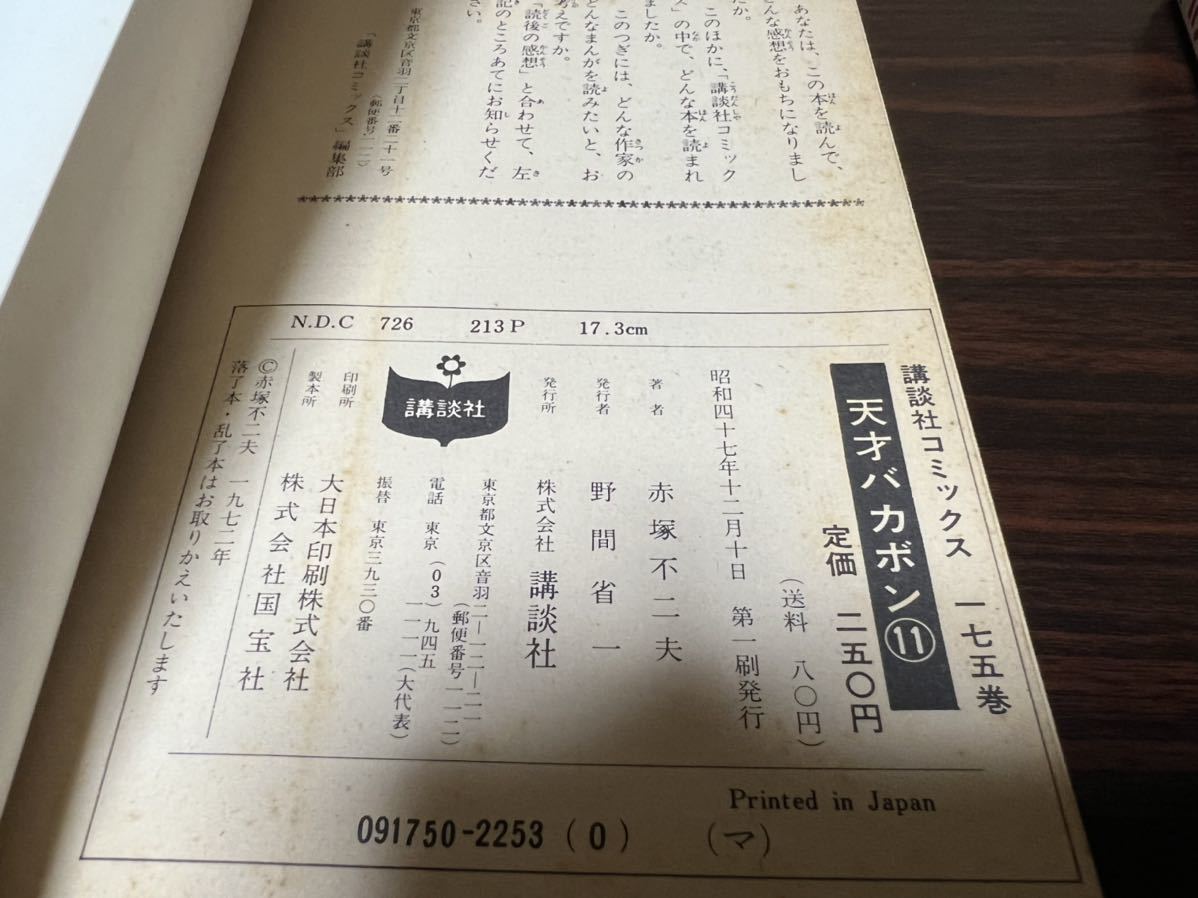 あなたは、この本を読んで、
んな感想をおもちになりまし
たか。
このほかに、「講談社コミック
ス」の中で、どんな本を読まれ
ましたか。
このつぎには、どんな作家の
どんなまんがを読みたいと、お
考えですか。
「読後の感想」と合わせて、左
記のところあてにお知らせくだ
さい。
東京都文京区音羽二丁目十二番二十一号
(郵便番号一一二)
「講談社コミックス」編集部
N.D.C 726 213P 17.3cm
講談社コミックス 一七五巻
天才バカボン⑪
定価 二五〇円
(送料 八〇円)
昭和四十七年十二月十日 第一刷発行
著者 赤塚不二夫
発行者 野間省一
発行所 株式会社 講談社
東京都文京区音羽二―一二―二一
(郵便番号一一二)
電話 東京(03)九四五
一一一一(大代表)
振替 東京三九三〇番
講談社
印刷所 大日本印刷株式会社
製本所 株式会社国宝社
©赤塚不二夫 一九七二年
落丁本・乱丁本はお取りかえいたします
Printed in Japan
091750-2253(0) (マ)